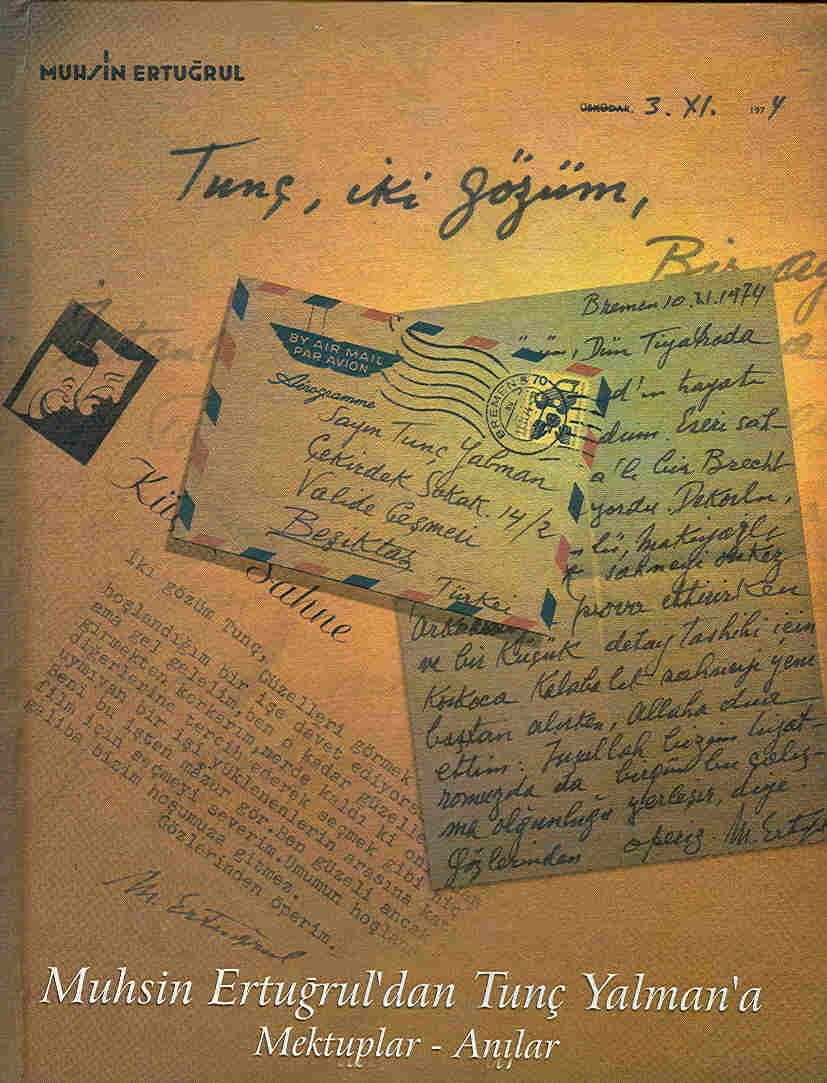 MUHSİN ERTUĞRUL
ÜSKÜDAR. 3. XI. 1974
Tunç, iki gözüm,
Bir ay
İstanbul
a
Bremen 10.XI.1974
Dün Tiyatroda
d'ın hayatı
dum. Eseri sal-
a'lı bir Brecht
yordu. Dekorlu,
lü, makiyajlı
sahneyi on kez
prova ettirirken
ve bir küçük detay tashihi için
koskoca kalabalık sahneyi yeni
baştan alırken, Allaha dua
ettim: İnşallah bizim tiyat-
romuzda da birgün bu çalış-
ma olgunluğu yerleşir, diye.
Gözlerinden öperiz. M. Ertuğ
BY AIR MAIL
PAR AVION
Aérogramme
BREMEN 8
70
Sayın Tunç Yalman
Çekirdek Sokak. 14/2
Valide Çeşmesi
Beşiktaş
Türkei
Kü
Sahne
İki gözüm Tunç,
Güzelleri görmek
hoşlandığım bir işe davet ediyors
ama gel gelelim, ben o kadar güzelle
girmekten korkarım, nerde kaldı ki on
diğerlerine tercih ederek seçmek gibi hiç
uymıyan bir işi yüklenenlerin arasına ka
Beni bu işten mâzur gör. Ben güzeli ancak
film için seçmeyi severim. Umumun hoşlan
galiba bizim hoşumuza gitmez.
Gözlerinden öperim.
M. Ertuğrul
Muhsin Ertuğrul'dan Tunç Yalman'a
Mektuplar - Anılar